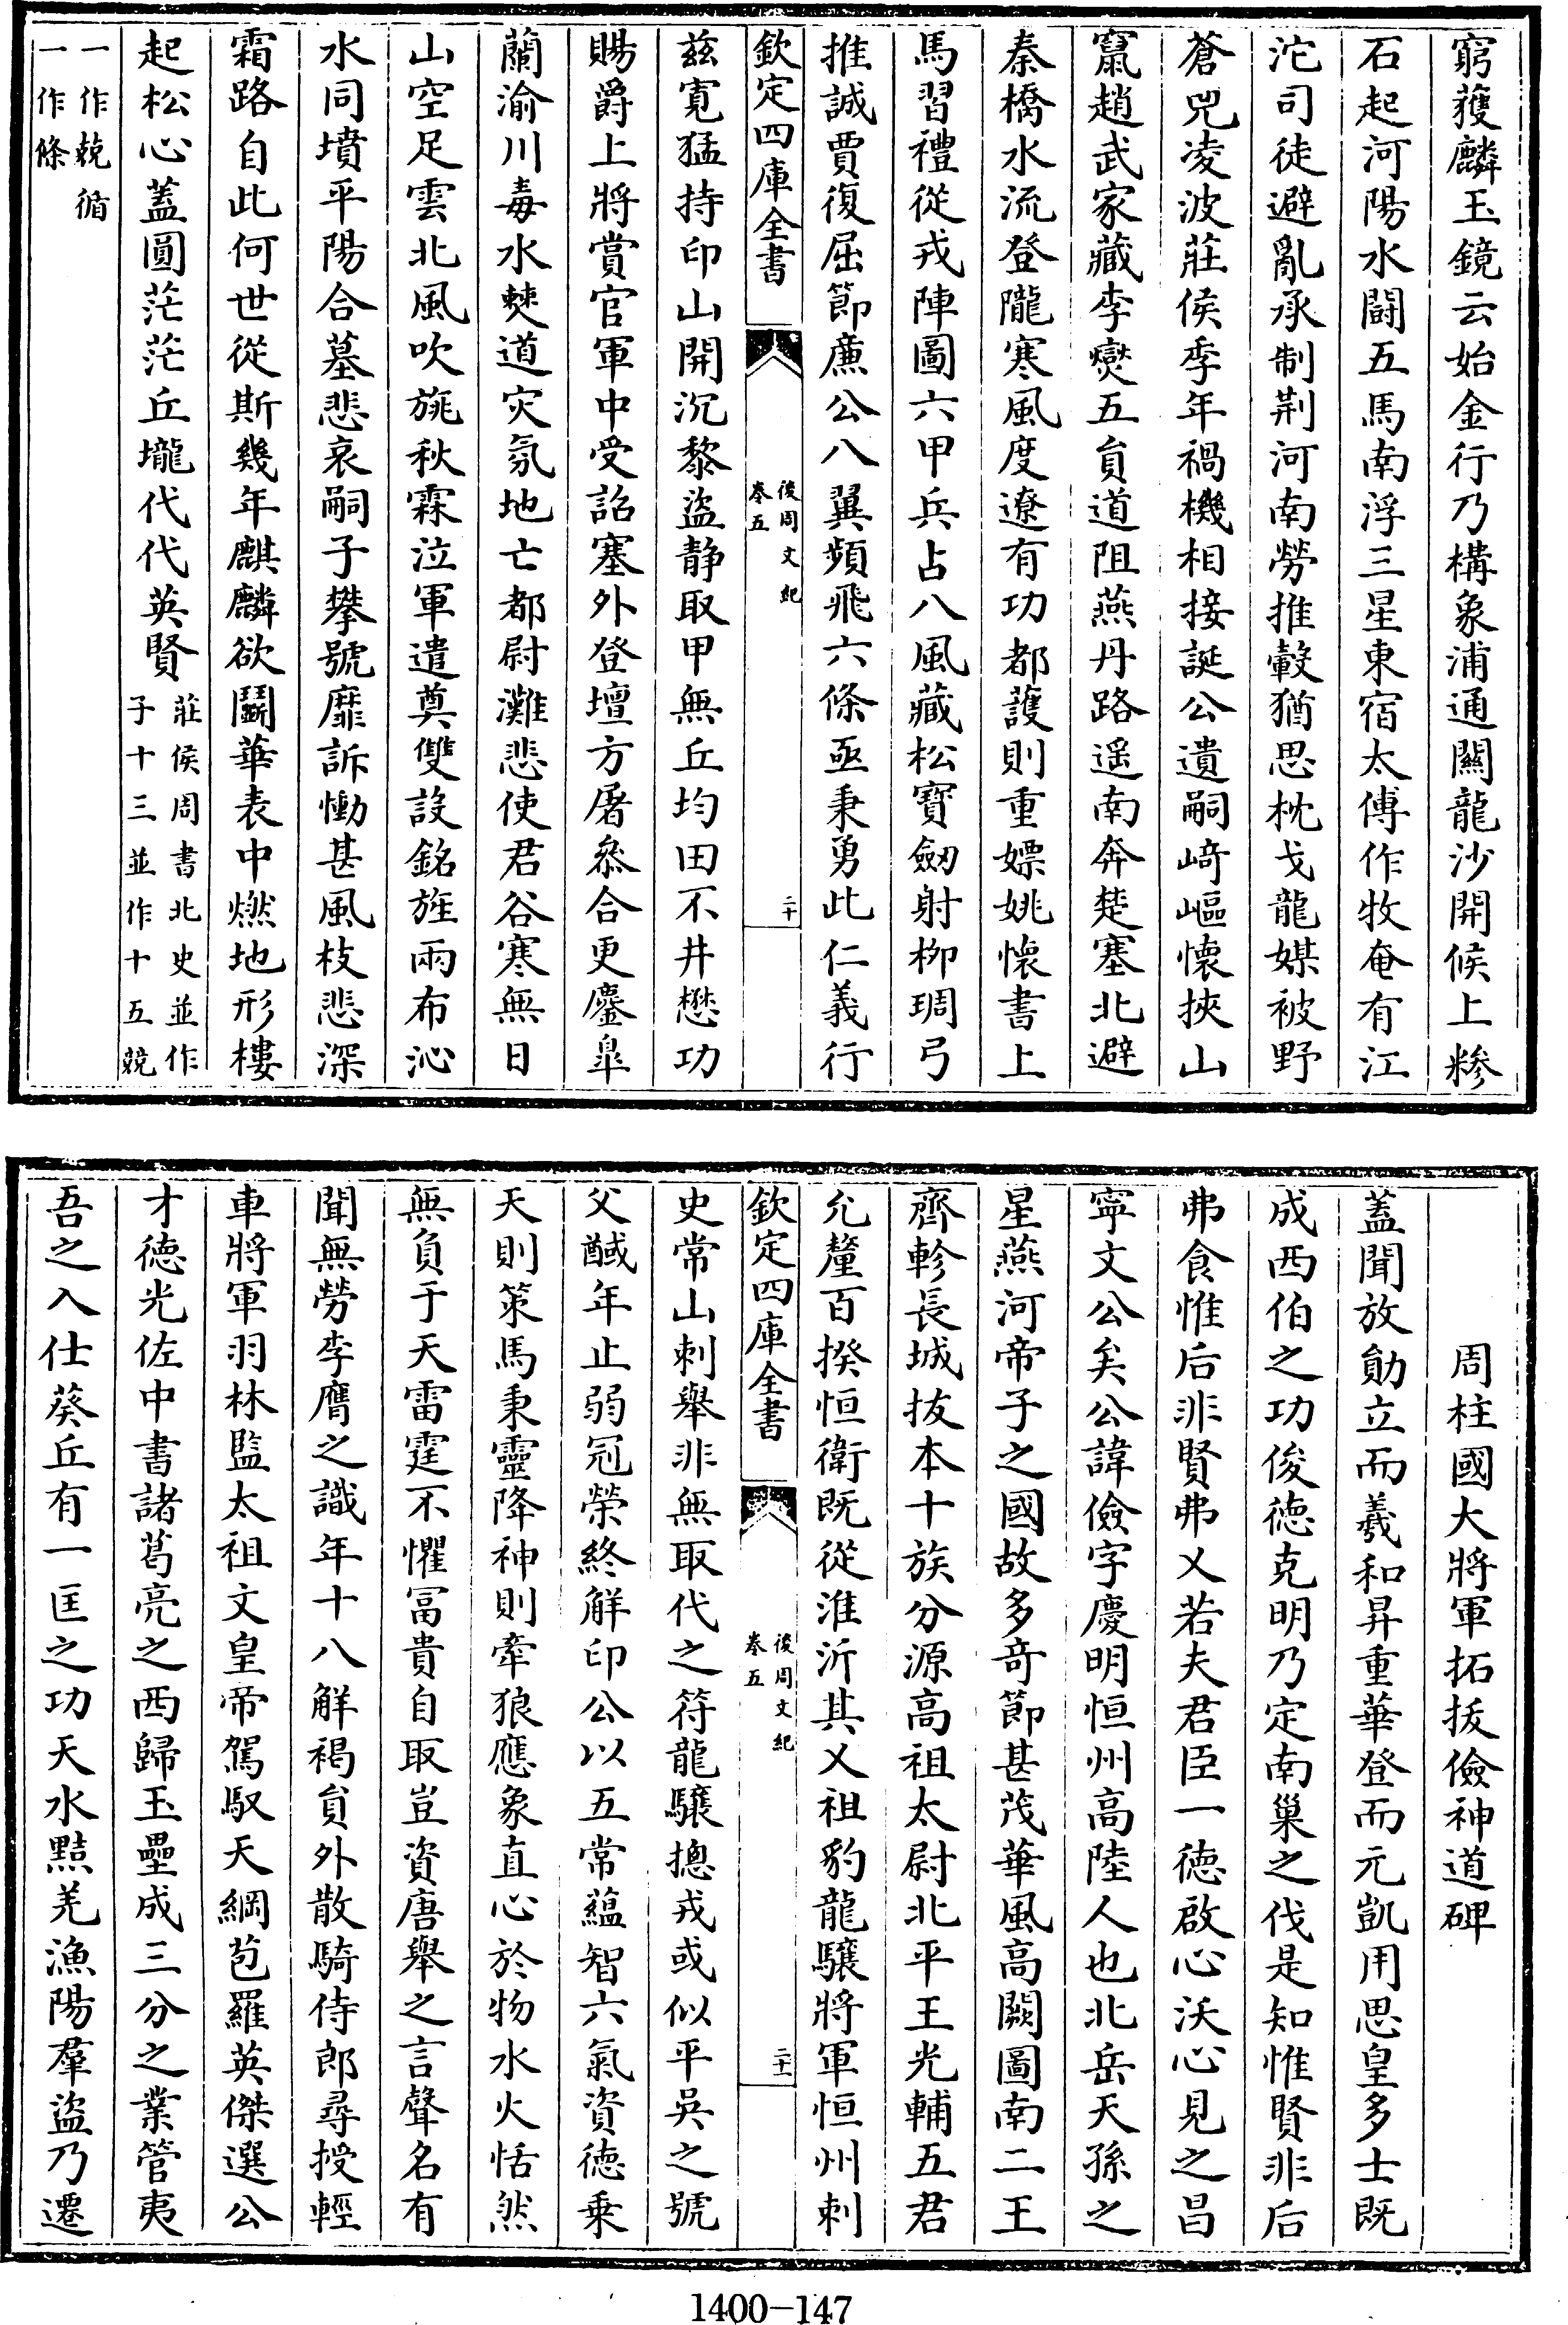 窮獲麟玉鏡云始金行乃構象浦通關龍沙開候上黲
石起河陽水鬪五馬南浮三星東宿太傅作牧奄有江
沱司徒避亂承制荆河南勞推轂猶思枕戈龍媒被野
蒼兕凌波莊侯季年禍機相接誕公遺嗣﨑嶇懷挾山
竄趙武家藏李爕五員道阻燕丹路遥南奔楚塞北避
秦橋水流登隴寒風度遼有功都護則重嫖姚懷書上
馬習禮從戎陣圖六甲兵占八風藏松寶劒射柳琱弓
推誠賈復屈節㢘公八翼頻飛六條亟秉勇此仁義行
欽定四庫全書
後周文紀
卷五
二十
兹寛猛持印山開沉黎盜静取甲無丘均田不井懋功
賜爵上將賞官軍中受詔塞外登壇方屠叅合更鏖臯
蘭渝川毒水僰道灾氛地亡都尉灘悲使君谷寒無日
山空足雲北風吹旐秋霖泣軍遣奠雙設銘旌兩布沁
水同墳平陽合墓悲哀嗣子攀號靡訴慟甚風枝悲深
霜路自此何世從斯幾年麒麟欲鬬華表中燃地形樓
起松心蓋圓茫茫丘壠代代英賢
莊侯周書北史並作
子十三並作十五競
一作兢循
一作條
周柱國大將軍拓拔儉神道碑
蓋聞放勛立而羲和昇重華登而元凱用思皇多士既
成西伯之功俊德克明乃定南巢之伐是知惟賢非后
弗食惟后非賢弗乂若夫君臣一德啟心沃心見之昌
寧文公矣公諱儉字慶明恒州高陸人也北岳天孫之
星燕河帝子之國故多竒節甚茂華風高闕圖南二王
齊軫長城抜本十族分源高祖太尉北平王光輔五君
允釐百揆恒衛既從淮沂其乂祖豹龍驤將軍恒州刺
欽定四庫全書
後周文紀
卷五
二十一
史常山刺舉非無取代之符龍驤摠戎或似平吳之號
父馘年止弱冠榮終解印公以五常蘊智六氣資德乗
天則策馬秉靈降神則牽狼應象直心於物水火恬然
無負于天雷霆不懼冨貴自取豈資唐舉之言聲名有
聞無勞李膺之識年十八解褐員外散騎侍郎尋授輕
車將軍羽林監太祖文皇帝駕馭天綱苞羅英傑選公
才德光佐中書諸葛亮之西歸玉壘成三分之業管夷
吾之入仕葵丘有一匡之功天水黠羌漁陽羣盜乃遷
1400-147